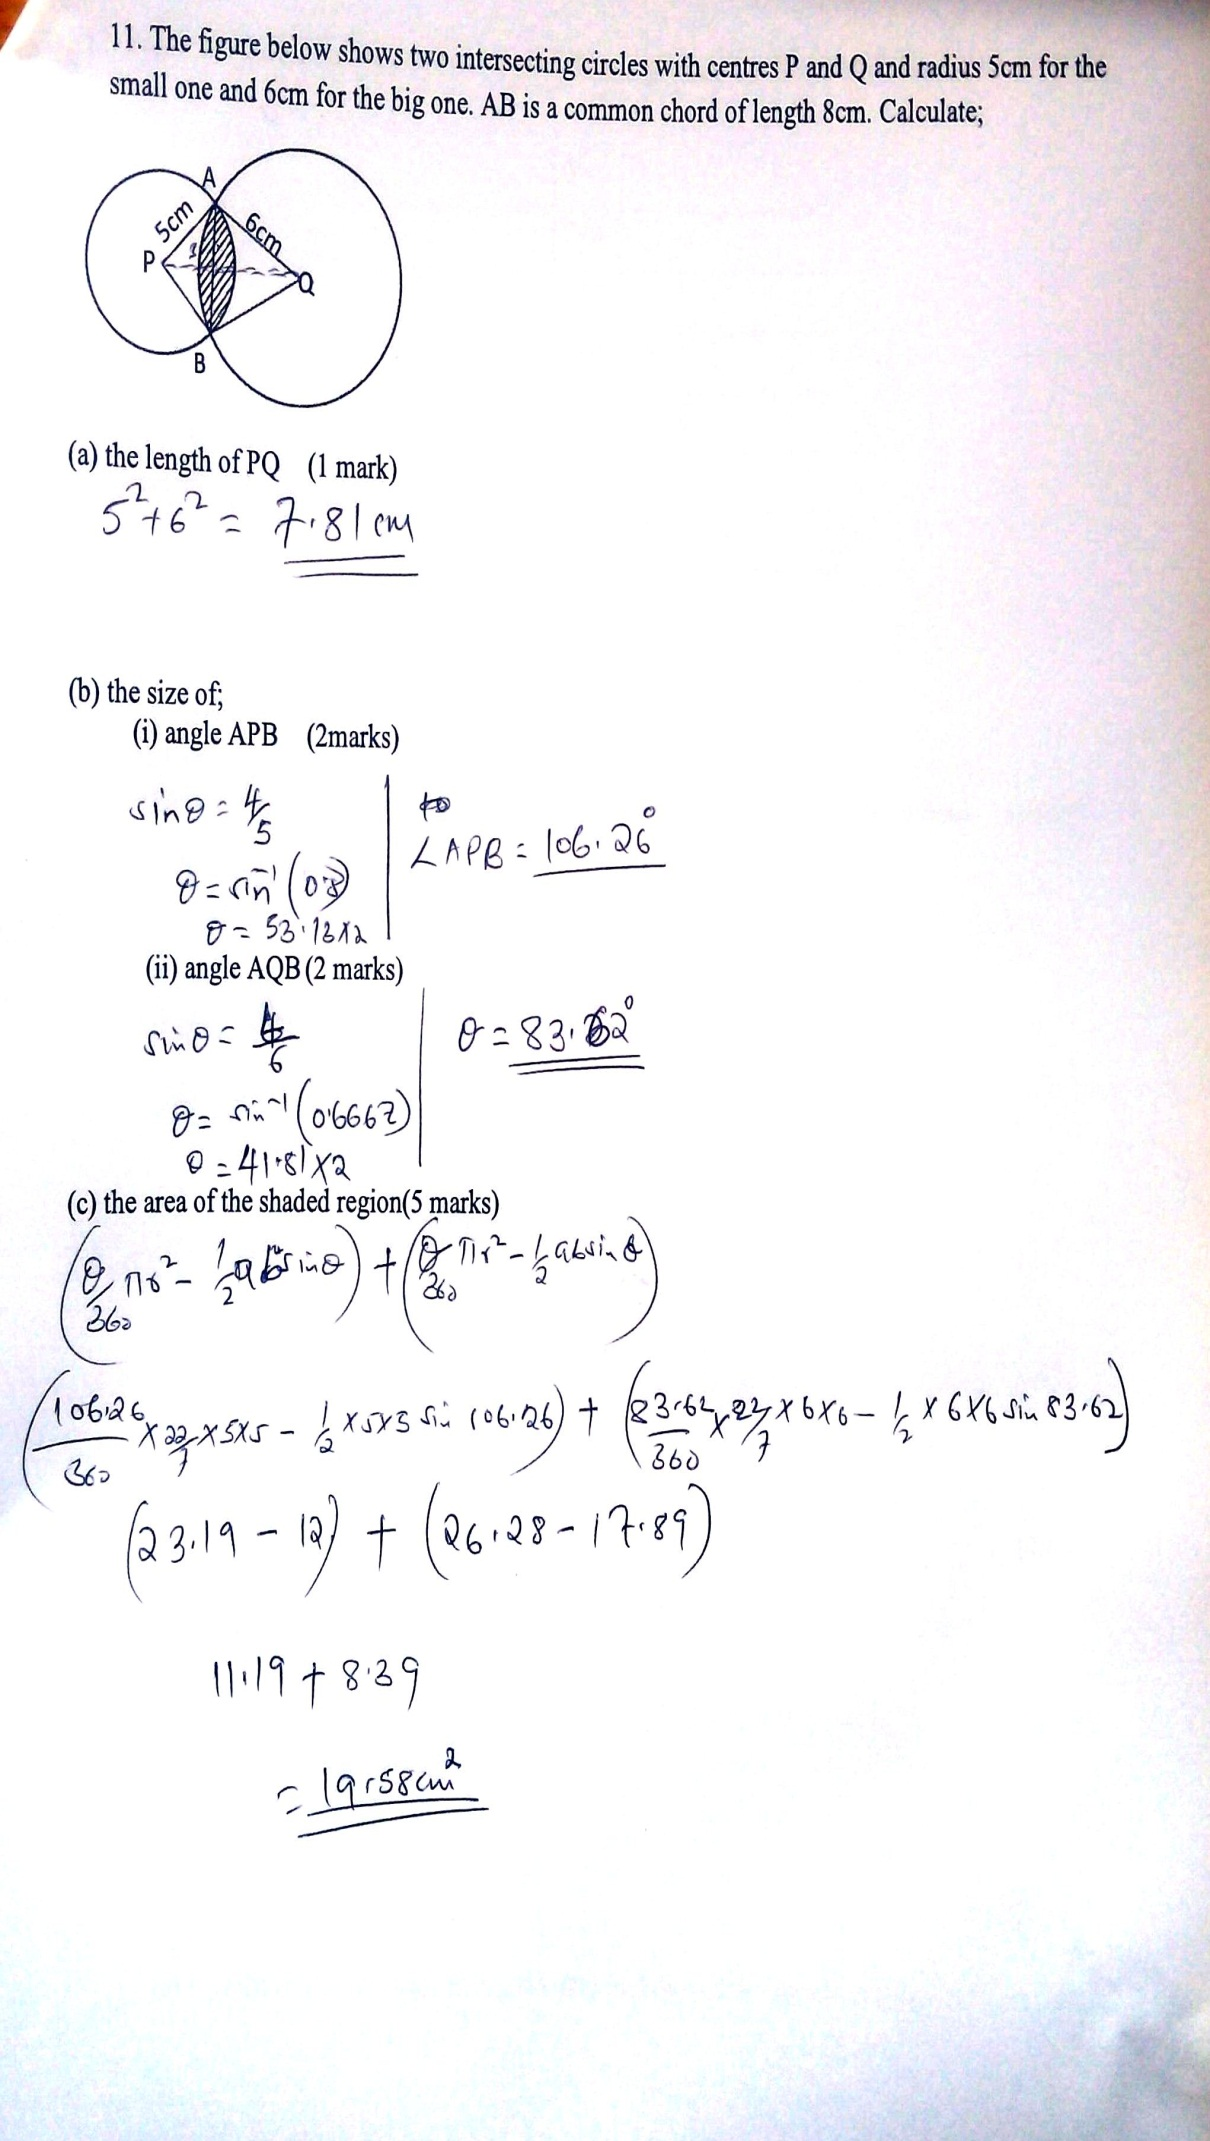 11. The figure below shows two intersecting circles with centres P and Q and radius 5cm for the
small one and 6cm for the big one. AB is a common chord of length 8cm. Calculate;
A
5cm
6cm
P
3
Q
B
(a) the length of PQ (1 mark)
5² + 6² = 7.81 cm
(b) the size of;
(i) angle APB (2marks)
sinθ = 4/5
θ = sin⁻¹(0.8)
θ = 53.13 x 2
∠APB = 106.26°
(ii) angle AQB (2 marks)
sinθ = 4/6
θ = sin⁻¹(0.6667)
θ = 41.81 x 2
θ = 83.62°
(c) the area of the shaded region(5 marks)
(θ/360 πr² - 1/2 ab sinθ) + (θ/360 πr² - 1/2 ab sinθ)
(106.26/360 x 22/7 x 5x5 - 1/2 x 5x5 sin 106.26) + (83.62/360 x 22/7 x 6x6 - 1/2 x 6x6 sin 83.62)
(23.19 - 12) + (26.28 - 17.89)
11.19 + 8.39
= 19.58cm²